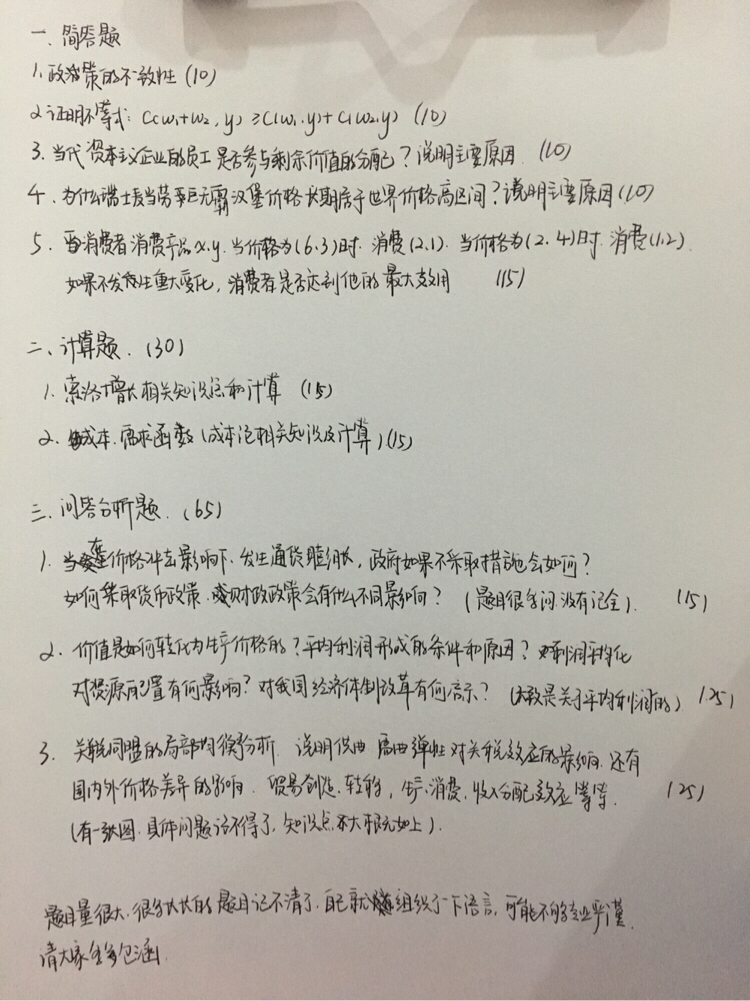 一、简答题
1. 政策的不一致性 (10)
2. 证明不等式: C(w1+w2, y) ≥ C(w1, y) + C(w2, y) (10)
3. 当代资本主义企业的员工是否参与剩余价值的分配? 说明主要原因. (10)
4. 为什么瑞士麦当劳巨无霸汉堡价格长期居于世界价格高区间? 说明主要原因 (10)
5. 当消费者消费产品 x, y. 当价格为 (6.3) 时. 消费 (2,1). 当价格为 (2.4) 时. 消费 (1,2).
如果不发生重大变化, 消费者是否达到他的最大效用 (15)
二、计算题. (30)
1. 索洛增长相关知识点和计算 (15)
2. 成本. 需求函数 (成本论相关知识及计算) (15)
三. 问答分析题. (65)
1. 在价格冲击影响下, 发生通货膨胀, 政府如果不采取措施会如何?
如何采取货币政策. 或财政政策会有什么不同影响? (题目很多问. 没有记全). (15)
2. 价值是如何转化为生产价格的? 平均利润形成的条件和原因? 利润平均化
对资源配置有何影响? 对我国经济体制改革有何启示? (大致是关于平均利润的) (25)
3. 关税同盟的局部均衡分析. 说明供曲 需曲弹性对关税效应的影响. 还有
国内外价格差异的影响. 贸易创造. 转移, 生产. 消费. 收入分配效应等等. (25)
(有一张图. 具体问题记不得了. 知识点大概如上).
题目量很大. 很多长长的题目记不清了. 自己就组织了一下语言, 可能不够专业严谨.
请大家多多包涵.